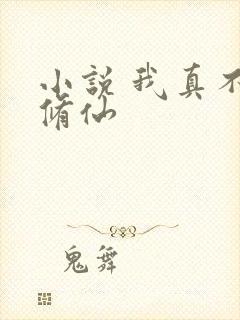 小説我真不
脩仙
鬼舞